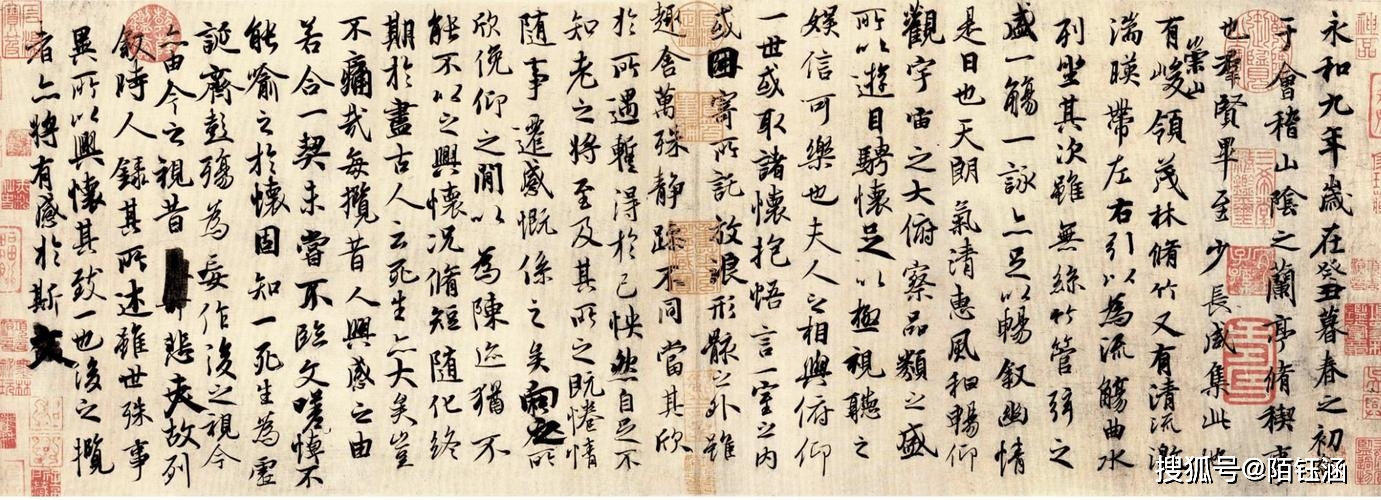 永和九年歲在癸丑暮春之初會
于會稽山陰之蘭亭脩禊事
也羣賢畢至少長咸集此地
有崇山峻領茂林脩竹又有清流激
湍暎帶左右引以為流觴曲水
列坐其次雖無絲竹管弦之
盛一觴一詠亦足以暢叙幽情
是日也天朗氣清惠風和暢仰
觀宇宙之大俯察品類之盛
所以遊目騁懷足以極視聽之
娛信可樂也夫人之相與俯仰
一世或取諸懷抱悟言一室之內
或因寄所託放浪形骸之外雖
趣舍萬殊静躁不同當其欣
於所遇蹔得於己怏然自足不
知老之將至及其所之既惓情
隨事遷感慨係之矣向之所
欣俛仰之閒以為陳迹猶不
能不以之興懷況脩短隨化終
期於盡古人云死生亦大矣豈
不痛哉每攬昔人興感之由
若合一契未嘗不臨文嗟悼不
能喻之於懷固知一死生為虛
誕齊彭殤為妄作後之視今
亦由今之視昔悲夫故列
叙時人錄其所述雖世殊事
異所以興懷其致一也後之攬
者亦將有感於斯文
搜狐号@陌钰涵